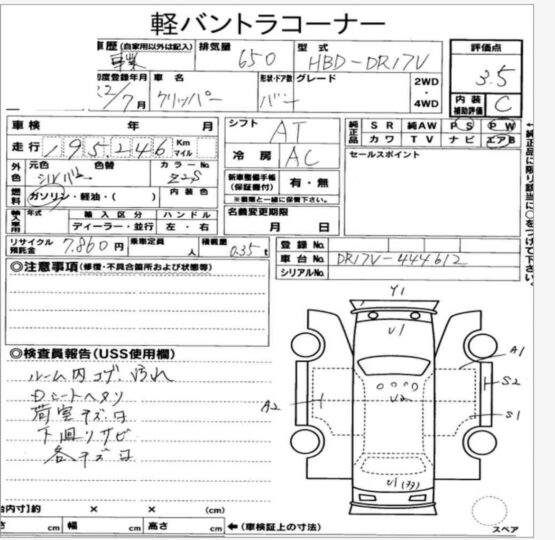 軽バントラコーナー
車歴 (自家用以外は記入) 排気量 650 型式 HBD-DR17V 評価点 3.5
初度登録年月 /7月 車名 クリッパー 形状・ドア数 バン グレード 2WD・4WD 内装補助評価 C
車検 年 月 シフト AT 純正品 SR 純AW PS PW
走行 195,246 Km マイル カワ TV ナビ エアB
冷房 AC セールスポイント
外色 元色 シルバー 色替 カラーNo. Z2S
燃料 ガソリン・軽油・( ) 内装色 新車整備手帳(保証書付) 有・無
※書類と一緒に保管下さい。
輸入車用 年式 輸入区分 ハンドル 名義変更期限
ディーラー・並行 左・右 月 日
リサイクル預託金 7,860円 乗車定員 人 積載量 0.35t 登録No.
車台No. DR17V-444612
シリアルNo.
◎注意事項(修復・不具合箇所および状態等)
◎検査員報告(USS使用欄)
ルーム内コゲ、汚れ
Dシートヘタリ
荷室キズ凹
下廻りサビ
各キズ凹
Y1
U1
A1
S2
A2
U2
S1
U1
台内寸)約 × × (cm)
さ cm 幅 cm 高さ cm ←(車検証上の寸法)
スペア
←純正品に限り該当に○をつけて下さい。